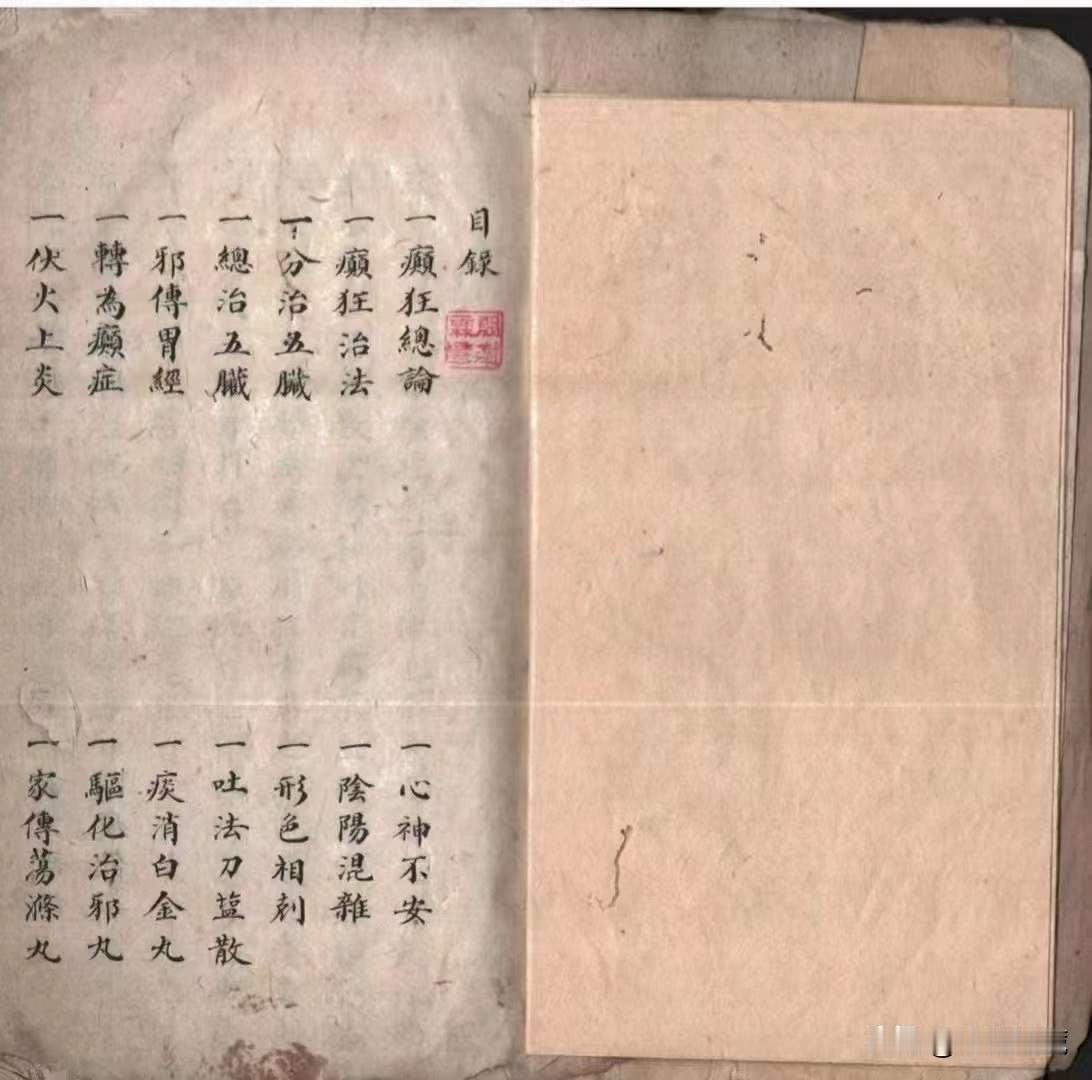 目錄
一癲狂總論
一心神不安
一癲狂治法
一陰陽混雜
一分治五臟
一形色相剋
一總治五臟
一吐法刀盐散
一邪傳胃經
一痰消白金丸
一轉為癲症
一驅化治邪丸
一伏火上炎
一家傳蕩滌丸